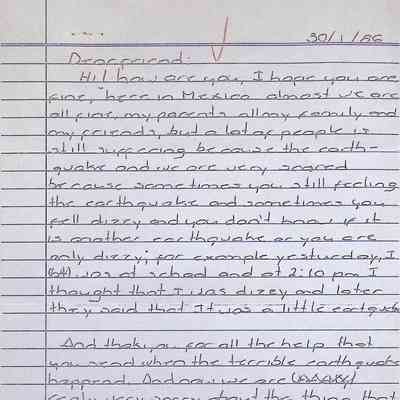 30/1/86
Dear friend:
Hi! how are you, I hope you are
fine, here in Mexico almost we are
all fine, my parents all my family and
my friends, but a lot of people is
still suffering because the earth-
quake and we are very scared
because sometimes you still feeling
the earthquake and sometimes you
fell dizzy and you don't know if it
is another earthquake or you are
only dizzy; for example yesturday, I
was at school and at 2:10 pm I
thought that I was dizey and later
they said that It was a little eartquak
And thak you for all the help that
you send when the terrible earthquake
happened. And now we are
realy very sorry about the thing that